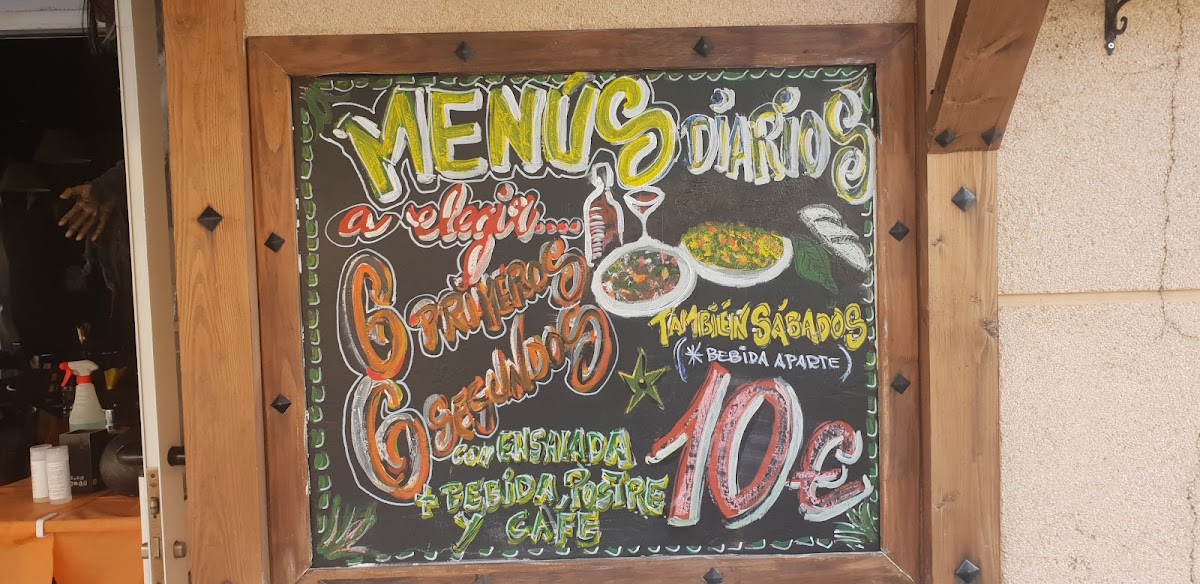 MENÚS DIARIOS
a elegir....
6 PRIMEROS
6 SEGUNDOS
TAMBIÉN SÁBADOS
(*BEBIDA APARTE)
con ENSALADA
+ BEBIDA, POSTRE
Y CAFE
10€